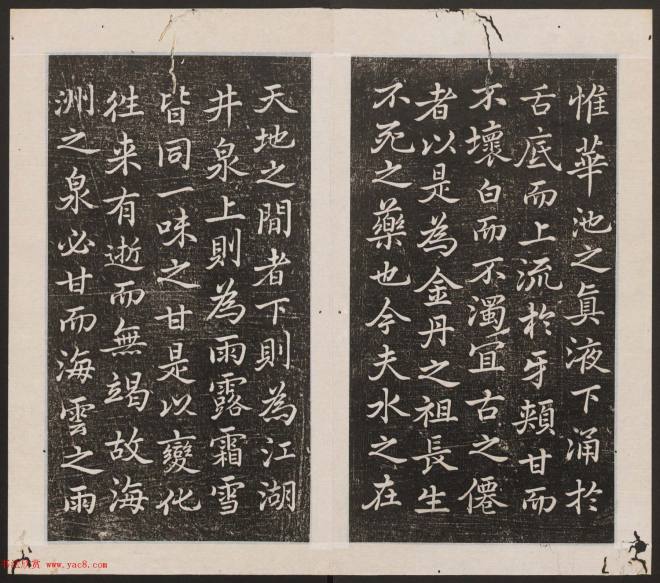 惟華池之真液下涌於
舌底而上流於牙頰甘而
不壞白而不濁宜古之僊
者以是為金丹之祖長生
不死之藥也今夫水之在
天地之間者下則為江湖
井泉上則為雨露霜雪
皆同一味之甘是以變化
徃来有逝而無竭故海
洲之泉必甘而海雲之雨
书法欣赏 www.yac8.com